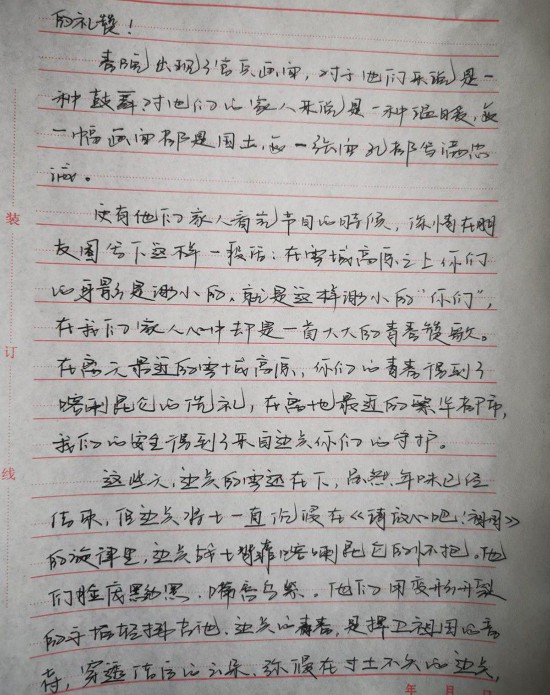 的礼赞！
春晚出现了官兵画面，对于他们来说是一
种鼓舞对他们的家人来说是一种温暖，每
一幅画面都是国土，每一张面孔都写满忠
诚。
更有他们家人看完节目的时候，深情在朋
友圈写下这样一段话：在雪域高原之上你们
的身影是渺小的，就是这样渺小的“你们”，
在我们家人心中却是一首大大的青春赞歌。
在离天最近的雪域高原，你们的青春得到了
喀喇昆仑的洗礼，在离地最近的繁华都市，
我们的安全得到了来自边关你们的守护。
这些天，边关的雪还在下，虽然年味已经
结束，但边关将士一直沉浸在《请放心吧！祖国》
的旋律里，边关战士背靠喀喇昆仑的
们脸庞黝黑、嘴唇乌紫。他们用变形开裂
的手指轻弹吉他，边关的青春，是捍卫祖国的青
春，穿透的云朵，弥漫在寸土不失的边关，
装
订
线
年 月